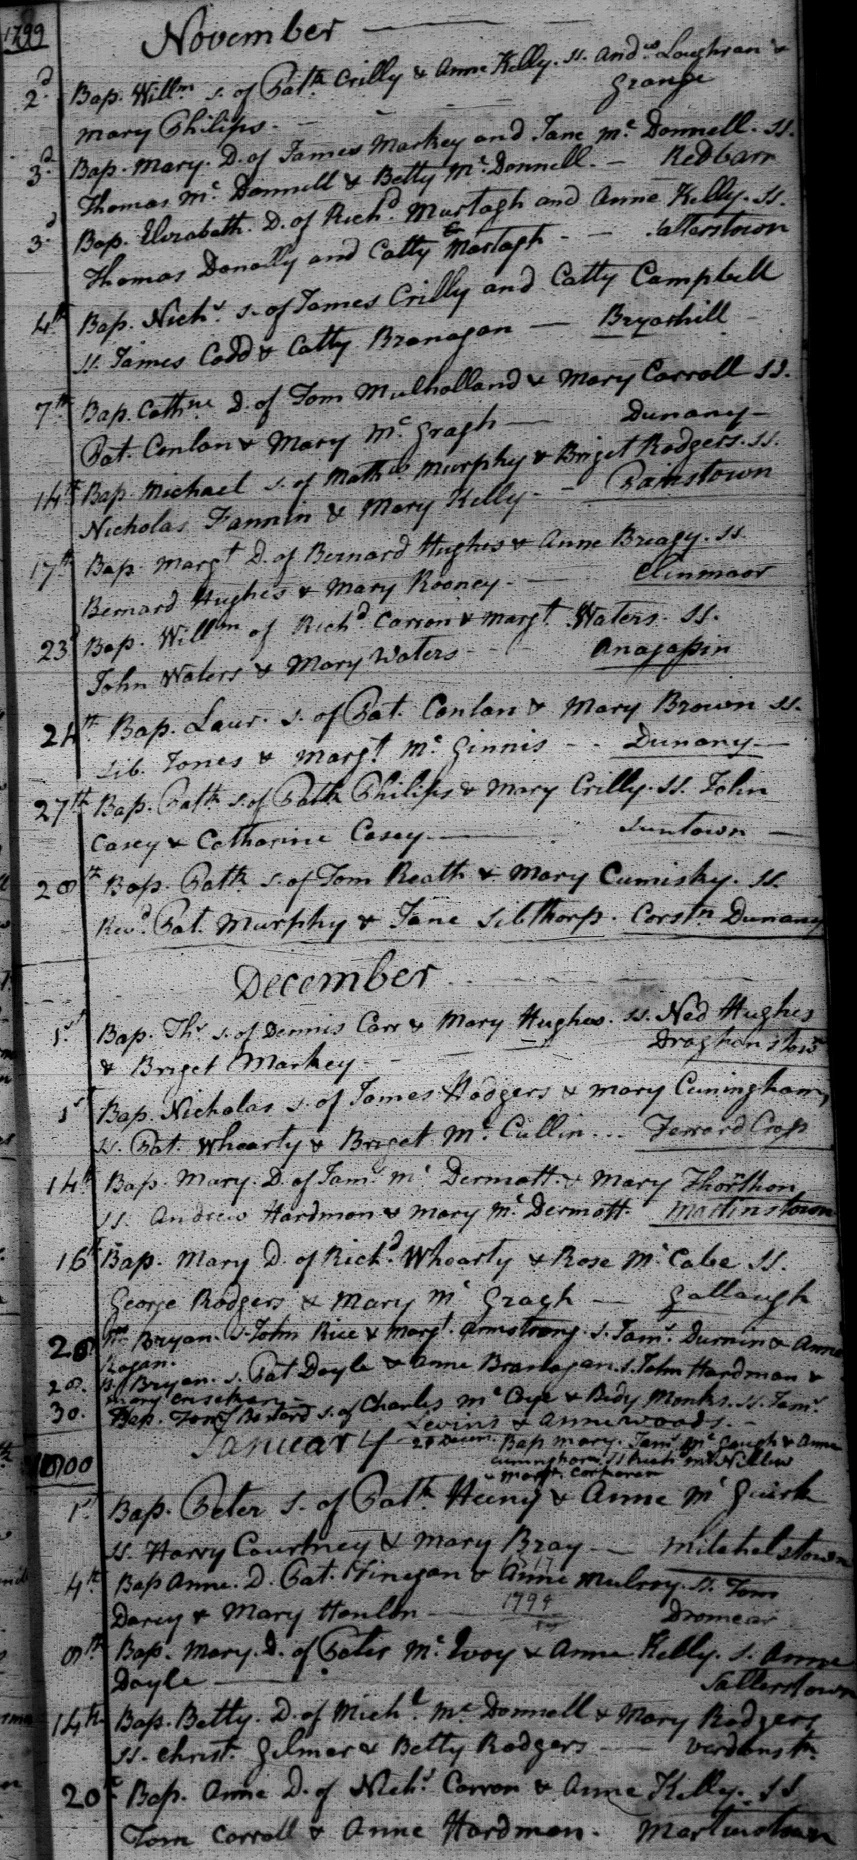 1799
November
2d Bap. Willm s. of Patk Crilly & Anne Kelly. ss. Andw Loughran &
mary Philips. Grange
3d Bap. Mary. D. of James Markey and Jane Mc Donnell. ss.
Thomas Mc Donnell & Betty Mc Donnell. Redbarn
3d Bap. Elizabeth. D. of Richd Murtagh and Anne Kelly. ss.
Thomas Donolly and Catty Murtagh Salterstown
4th Bap. Nichs s. of James Crilly and Catty Campbell
ss. James Codd & Catty Branagan
7th Bap. Cathne D. of Tom Mulholland & Mary Carroll ss.
Pat. Conlan & Mary Mc Gragh Dunany
14th Bap. Michael s. of Mathw Murphy & Briget Rodgers. ss.
Nicholas Fannin & Mary Kelly. Painstown
17th Bap. Margt D. of Bernard Hughes & Anne Breagy. ss.
Bernard Hughes & Mary Rooney. Clinmoor
23d Bap. Willm of Richd Carron & Margt Waters. ss.
John Waters & Mary Waters Anagapin
24th Bap. Laur. s. of Pat. Conlan & Mary Brown ss.
Sib. Jones & Margt Mc Ginnis Dunany
27th Bap. Patk s. of Patk Philips & Mary Crilly. ss. John
Casey & Catharine Casey.
28th Bap. Patk s. of Tom Reath & Mary Cumisky. ss.
Revd Pat. Murphy & Jane Sibthorp. Corstn Dunany
December
1st Bap. Ths s. of Dennis Carr & Mary Hughes. ss. Ned Hughes
& Briget Markey.
1st Bap. Nicholas s. of James Hodgers & Mary Cuningham,
ss. Pat. Whearty & Briget Mc Cullin
14th Bap. Mary. D. of Jams Mc Dermott. & Mary Thornton
ss. Andrew Hardman & Mary Mc Dermott. Martinstown
16th Bap. Mary D. of Richd Whearty & Rose Mc Cabe ss.
George Rodgers & Mary Mc Gragh Gallaugh
28th Bryan. s. John Rice & Margt Armstrong. s. Jams Durnin & Anne
Rogan.
28. Bryan. s. Pat Doyle & Anne Branagan. s. John Hardman &
Mary
30. Bap. Tom Bastard s. of Charles Mc Coye & Bidy Monks. ss. Jams
Levins & Anne Woods.
January
28 Decem. Bap Mary. Jams Mc Gaugh & Anne
1800 Cuningham. ss
& Margt Corkoran
1st Bap. Peter s. of Patk Heeny & Anne Mc Guirk
ss. Harry Courtney & Mary Bray Mitchelstown
4th Bap Anne. D. Pat. Finegan & Anne Mulroy. ss. Tom
Darcy & Mary Hanlon 1799 Dromear
8th Bap. Mary. D. of Peter Mc Evoy & Anne Kelly. s. Anne
Doyle Salterstown
14th Bap. Betty. D. of Michl Mc Donnell & Mary Rodgers
ss. Christ. Gilmer & Betty Rodgers Verdonstn
20th Bap. Anne D. of Nichs Carron & Anne Kelly. ss
Tom Carroll & Anne Hardman. Martinstown